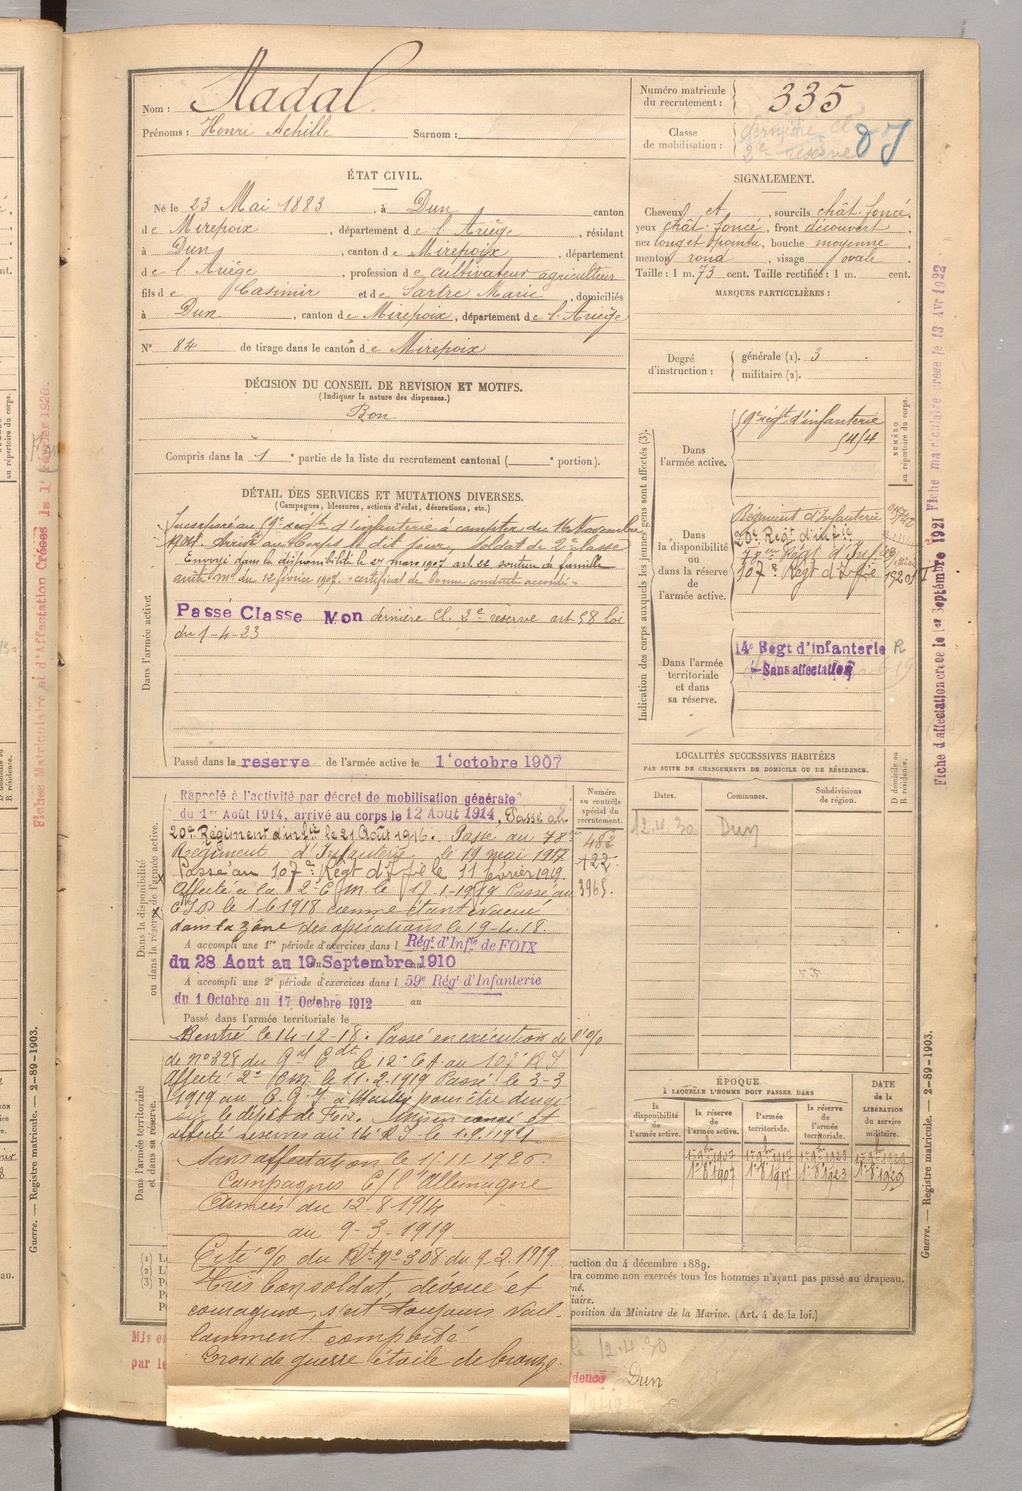 Nom : Nadal
Prénoms : Henri Achille Surnom :
Numéro matricule du recrutement : 335
Classe de mobilisation : dernière cl
2e réserve
ÉTAT CIVIL.
Né le 23 Mai 1883, à Dun canton
de Mirepoix, département de l'Ariège, résidant
à Dun, canton de Mirepoix, département
de l'Ariège, profession de cultivateur agriculteur
fils de Casimir et de Sartre Marie, domiciliés
à Dun, canton de Mirepoix, département de l'Ariège
No 84 de tirage dans le canton de Mirepoix
SIGNALEMENT.
Cheveux et, sourcils chât. foncé.
yeux chât. foncé, front découvert
nez long et pointu, bouche moyenne
menton rond, visage ovale
Taille : 1 m. 73 cent. Taille rectifiée : 1 m. cent.
MARQUES PARTICULIÈRES :
Degré d'instruction : générale (1). 3
militaire (2).
DÉCISION DU CONSEIL DE REVISION ET MOTIFS.
(Indiquer la nature des dispenses.)
Bon
Compris dans la 1e partie de la liste du recrutement cantonal (e portion).
DÉTAIL DES SERVICES ET MUTATIONS DIVERSES.
(Campagnes, blessures, actions d'éclat, décorations, etc.)
Dans l'armée active.
Incorporé au 59e régt d'infanterie à compter du 16 Novembre
1904. Arrivé au Corps le dit jour, soldat de 2e classe
Envoyé dans la disponibilité le 27 mars 1907 art. 22 soutien de famille
autn. m. du 12 février 1907. certificat de bonne conduite accordé
Passé Classe Mon dernière Cl. 2e réserve art 58 loi
du 1-4-23
Passé dans la reserve de l'armée active le 1er octobre 1907
Indication des corps auxquels les jeunes gens sont affectés (3).
NUMÉRO au répertoire du corps.
Dans l'armée active.
59e régt d'infanterie
Dans la disponibilité ou dans la réserve de l'armée active.
Régiment d'Infanterie
20e Régt d'infie
78eme Régt d'Inf
107e Régt d'Infie
Dans l'armée territoriale et dans sa réserve.
14e Régt d'Infanterie R
Sans affectation
LOCALITÉS SUCCESSIVES HABITÉES
PAR SUITE DE CHANGEMENTS DE DOMICILE OU DE RÉSIDENCE.
Dates. Communes. Subdivisions de région. D domicile ou R résidence.
12.4.30 Dun
Dans la disponibilité ou dans la réserve de l'armée active.
Numéro au contrôle spécial du recrutement.
Rappelé à l'activité par décret de mobilisation générale
du 1er Août 1914, arrivé au corps le 12 Août 1914, Passé au
20e Régiment d'infie le 21 Août 1916. Passé au 78e
Régiment d'Infanterie le 19 mai 1917
Passé au 107e Régt d'Infie le 11 février 1919.
Affecté à la 2e C.M. le Passé au
C I D le 1 6 1918 comme étant évacué
dans la zône des opérations le 19-4-18.
A accompli une 1re période d'exercices dans l Régt d'Infie de FOIX
du 28 Aout au 19 Septembre 1910
A accompli une 2e période d'exercices dans l 59e Régt d'Infanterie
du 1 Octobre au 17 Octobre 1912 au
Passé dans l'armée territoriale le
Rentré le 14-12-18. Passé en exécution de l'o/o
de no 328 du Gal Cdt le 12e CA au 107e RI
Affecté 2e C.M. le 11.2.1919 Passé le 3-3
1919 au pour être dirigé
sur le dépôt de Foix. Mis en congé et
affecté reserves au 14e R.I.
Sans affectation le 15.11.1926.
Campagnes C/ l'Allemagne
Armées du 12-8-1914
au 9-3-1919
Cité o/o du Rt no 308 du 9.2.1919.
Très bon soldat, dévoué et
courageux, s'est toujours vail-
lamment comporté
Croix de guerre étoile de bronze.
Dans l'armée territoriale et dans sa réserve.
ÉPOQUE
À LAQUELLE L'HOMME DOIT PASSER DANS
DATE DE LA LIBÉRATION du service militaire.
la disponibilité de l'armée active. la réserve de l'armée active. l'armée territoriale. la réserve de l'armée territoriale.
ruction du 4 décembre 1889.
dra comme non exercés tous les hommes n'ayant pas passé au drapeau.
position du Ministre de la Marine. (Art. 4 de la loi.)
le 12.4.30
dence Dun
Mis en
par le
Guerre. — Registre matricule. — 2-89-1903.
Guerre. — Registre matricule. — 2-89-1903.
Fiche matriculaire créée le 13 Avr 1922
Fiche d'affectation créée le 1er Septembre 1921
Fiches Matriculaire et d'Affectation Créées le 1er Janvier 1926.